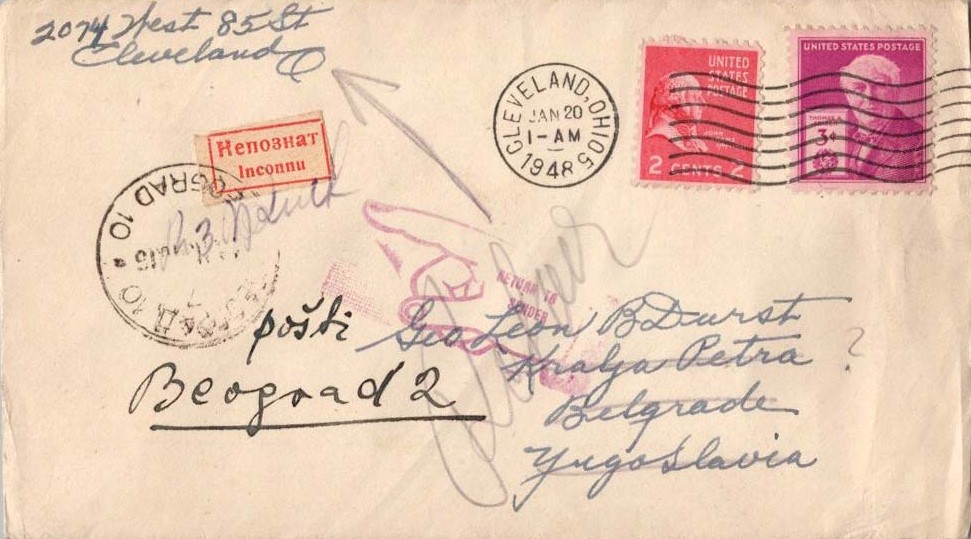 2074 West 85 St
Cleveland O
CLEVELAND, OHIO 5
JAN 20
1-AM
1948
UNITED
STATES
POSTAGE
JOHN
2 CENTS 2
UNITED STATES POSTAGE
THOMAS A.
3¢
Непознат
Inconnu
GRAD 10
RETURN TO
SENDER
Return
pošti
Beograd 2
Geo Leon B Durst
Kralja Petra ?
Belgrade
Yugoslavia